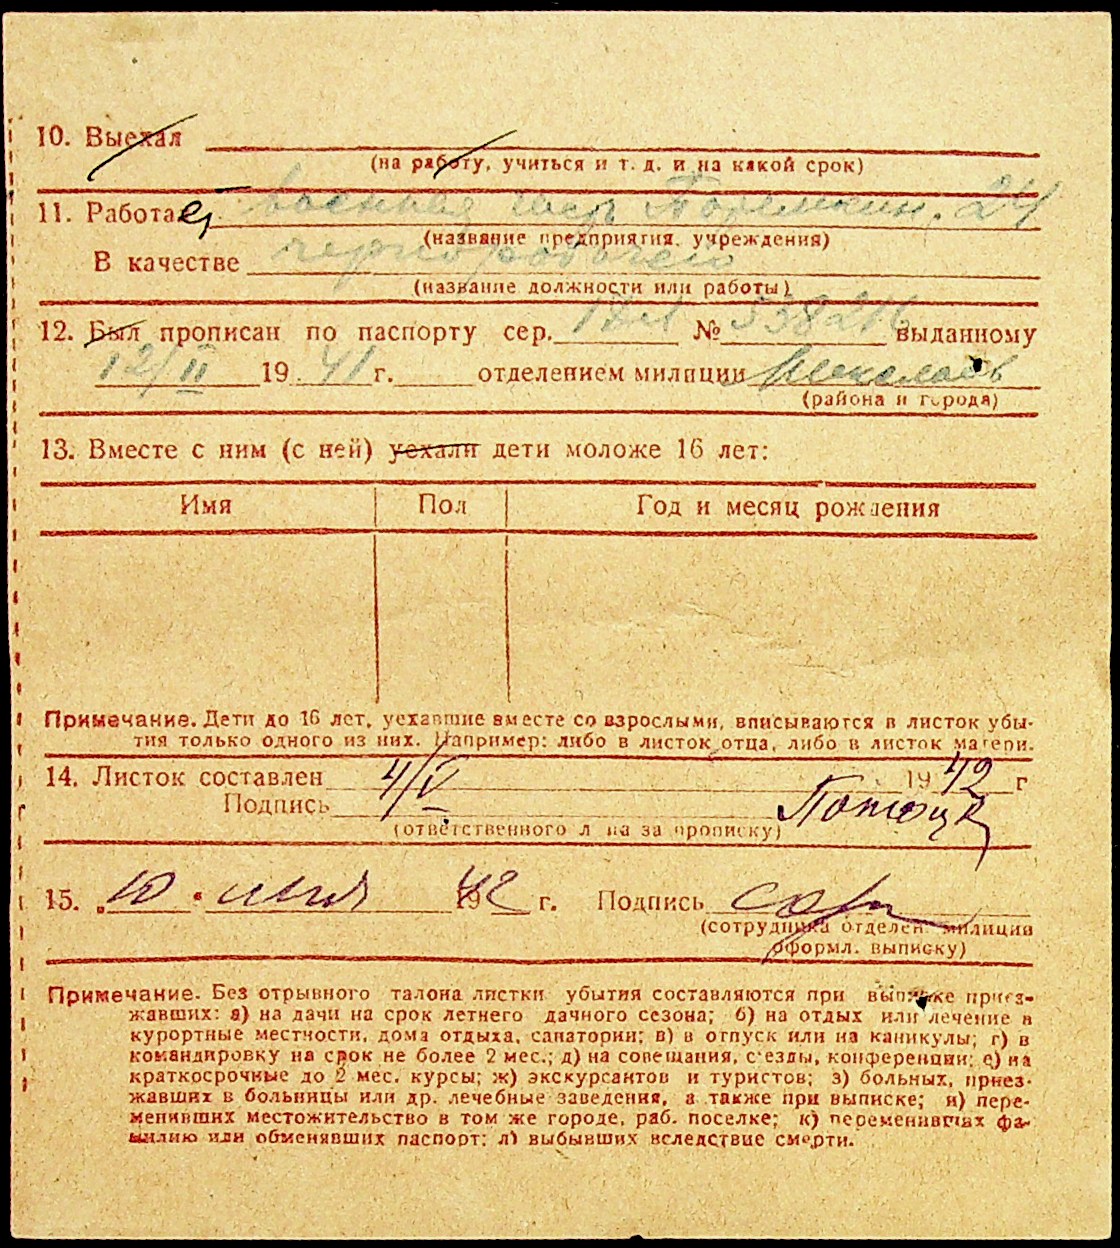 10. Выехал
(на работу, учиться и т. д. и на какой срок)
11. Работает военная 24
(название предприятия, учреждения)
В качестве чернорабочего
(название должности или работы)
12. Был прописан по паспорту сер. № 538216 выданному
12/II 1941 г. отделением милиции Николаев
(района и города)
13. Вместе с ним (с ней) уехали дети моложе 16 лет:
Имя Пол Год и месяц рождения
Примечание. Дети до 16 лет, уехавшие вместе со взрослыми, вписываются в листок убы-
тия только одного из них. Например: либо в листок отца, либо в листок матери.
14. Листок составлен 4/V 1942 г
Подпись
(ответственного л на за прописку)
15. „10 " 1942 г. Подпись
(сотрудника отделен. милиции
оформл. выписку)
Примечание. Без отрывного талона листки убытия составляются при выписке приез-
жавших: а) на дачи на срок летнего дачного сезона; б) на отдых или лечение в
курортные местности, дома отдыха, санатории; в) в отпуск или на каникулы; г) в
командировку на срок не более 2 мес.; д) на совещания, съезды, конференции; е) на
краткосрочные до 2 мес. курсы; ж) экскурсантов и туристов; з) больных, приез-
жавших в больницы или др. лечебные заведения, а также при выписке; и) пере-
менивших местожительство в том же городе, раб. поселке; к) переменивших фа-
милию или обменявших паспорт; л) выбывших вследствие смерти.